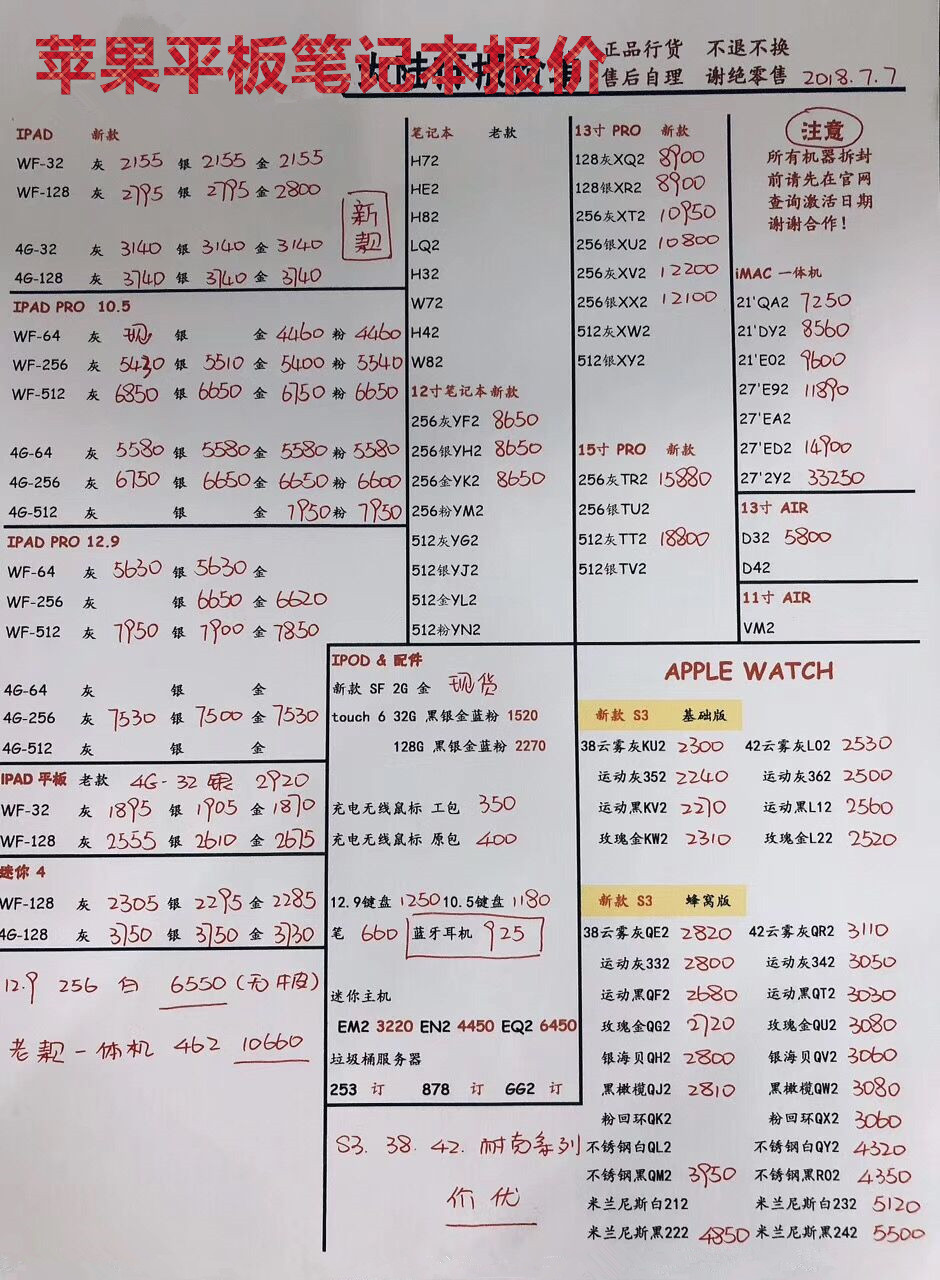 苹果平板笔记本报价
正品行货 不退不换
售后自理 谢绝零售 2018.7.7
IPAD 新款
WF-32 灰 2155 银 2155 金 2155
WF-128 灰 2795 银 2795 金 2800
新款
4G-32 灰 3140 银 3140 金 3140
4G-128 灰 3740 银 3740 金 3740
IPAD PRO 10.5
WF-64 灰 现 银 金 4460 粉 4460
WF-256 灰 5430 银 5510 金 5400 粉 5540
WF-512 灰 6850 银 6650 金 6750 粉 6650
4G-64 灰 5580 银 5580 金 5580 粉 5580
4G-256 灰 6750 银 6650 金 6650 粉 6600
4G-512 灰 银 金 7950 粉 7950
IPAD PRO 12.9
WF-64 灰 5630 银 5630 金
WF-256 灰 银 6650 金 6620
WF-512 灰 7950 银 7900 金 7850
4G-64 灰 银 金
4G-256 灰 7530 银 7500 金 7530
4G-512 灰 银 金
IPAD 平板 老款 4G-32 银 2920
WF-32 灰 1895 银 1905 金 1870
WF-128 灰 2555 银 2610 金 2675
迷你 4
WF-128 灰 2305 银 2295 金 2285
4G-128 灰 3750 银 3750 金 3730
12.9 256 白 6550 (无牛皮)
老款一体机 462 10660
笔记本 老款
H72
HE2
H82
LQ2
H32
W72
H42
W82
12寸笔记本新款
256灰YF2 8650
256银YH2 8650
256金YK2 8650
256粉YM2
512灰YG2
512银YJ2
512金YL2
512粉YN2
13寸 PRO 新款
128灰XQ2 8900
128银XR2 8900
256灰XT2 10950
256银XU2 10800
256灰XV2 12200
256银XX2 12100
512灰XW2
512银XY2
15寸 PRO 新款
256灰TR2 15880
256银TU2
512灰TT2 18800
512银TV2
注意
所有机器拆封
前请先在官网
查询激活日期
谢谢合作!
iMAC 一体机
21'QA2 7250
21'DY2 8560
21'E02 9600
27'E92 11890
27'EA2
27'ED2 14900
27'2Y2 33250
13寸 AIR
D32 5800
D42
11寸 AIR
VM2
IPOD & 配件
新款 SF 2G 金 现货
touch 6 32G 黑银金蓝粉 1520
128G 黑银金蓝粉 2270
充电无线鼠标 工包 350
充电无线鼠标 原包 400
12.9键盘 1250 10.5键盘 1180
笔 660 蓝牙耳机 925
迷你主机
EM2 3220 EN2 4450 EQ2 6450
垃圾桶服务器
253 订 878 订 GG2 订
S3. 38. 42. 耐克系列
价优
APPLE WATCH
新款 S3 基础版
38云雾灰KU2 2300 42云雾灰L02 2530
运动灰352 2240 运动灰362 2500
运动黑KV2 2270 运动黑L12 2560
玫瑰金KW2 2310 玫瑰金L22 2520
新款 S3 蜂窝版
38云雾灰QE2 2820 42云雾灰QR2 3110
运动灰332 2800 运动灰342 3050
运动黑QF2 2680 运动黑QT2 3030
玫瑰金QG2 2720 玫瑰金QU2 3080
银海贝QH2 2800 银海贝QV2 3060
黑橄榄QJ2 2810 黑橄榄QW2 3080
粉回环QK2 粉回环QX2 3060
不锈钢白QL2 不锈钢白QY2 4320
不锈钢黑QM2 3950 不锈钢黑R02 4350
米兰尼斯白212 米兰尼斯白232 5120
米兰尼斯黑222 4850 米兰尼斯黑242 5500